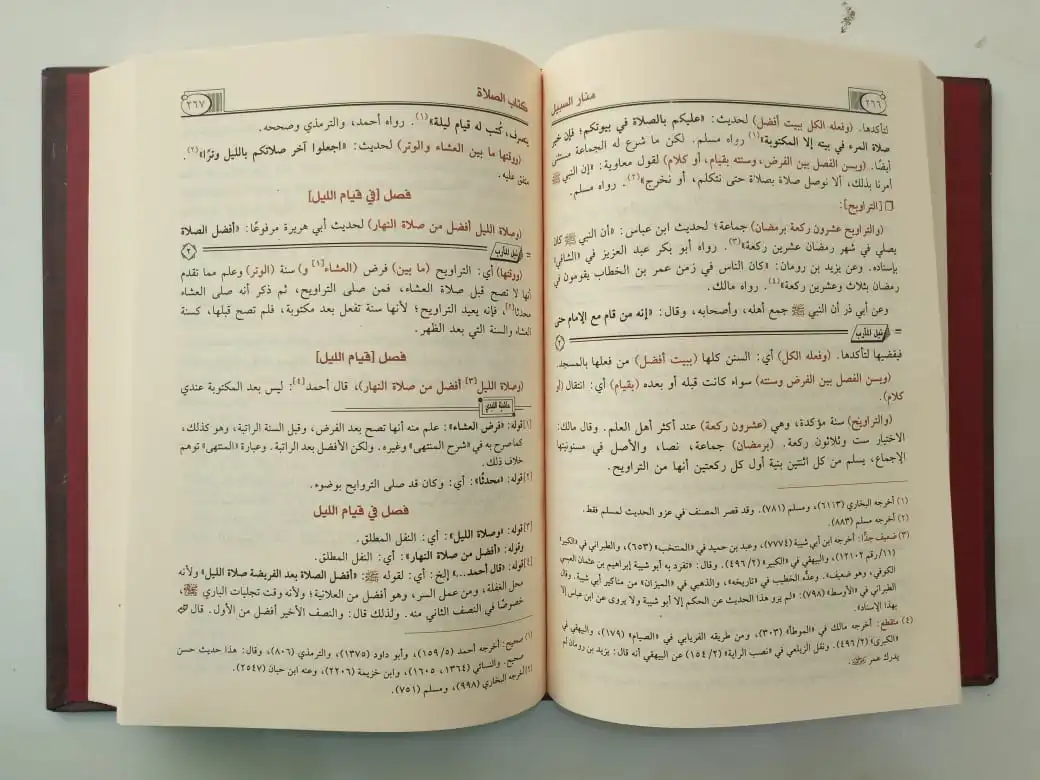 ٢٦٦
منار السبيل
لتأكدها. (وفعله الكل ببيت أفضل) لحديث: «عليكم بالصلاة في بيوتكم؛ فإن خير
صلاة المرء في بيته إلا المكتوبة»(١) رواه مسلم. لكن ما شرع له الجماعة مستثنى
أيضًا. (ويسن الفصل بين الفرض، وسنته بقيام، أو كلام) لقول معاوية: «إن النبي ﷺ
أمرنا بذلك، ألا نوصل صلاة بصلاة حتى نتكلم، أو نخرج»(٢). رواه مسلم.
❒ [التراويح]:
(والتراويح عشرون ركعة برمضان) جماعة؛ لحديث ابن عباس: «أن النبي ﷺ كان
يصلي في شهر رمضان عشرين ركعة»(٣). رواه أبو بكر عبد العزيز في «الشافي»
بإسناده. وعن يزيد بن رومان: «كان الناس في زمن عمر بن الخطاب يقومون في
رمضان بثلاث وعشرين ركعة»(٤). رواه مالك.
وعن أبي ذر أن النبي ﷺ جمع أهله، وأصحابه، وقال: «إنه من قام مع الإمام حتى
= نيل المآرب
٢
فيقضيها لتأكدها. (وفعله الكل) أي: السنن كلها (ببيت أفضل) من فعلها بالمسجد.
(ويسن الفصل بين الفرض وسنته) سواء كانت قبله أو بعده (بقيام) أي: انتقال (أو
كلام).
(والتراويح) سنة مؤكدة، وهي (عشرون ركعة) عند أكثر أهل العلم. وقال مالك:
الاختيار ست وثلاثون ركعة. (برمضان) جماعة، نصا، والأصل في مسنونيتها
الإجماع، يسلم من كل اثنتين بنية أول كل ركعتين أنها من التراويح.
(١) أخرجه البخاري (٦١١٣)، ومسلم (٧٨١). وقد قصر المصنف في عزو الحديث لمسلم فقط.
(٢) أخرجه مسلم (٨٨٣).
(٣) ضعيف جدًّا: أخرجه ابن أبي شيبة (٧٧٧٤)، وعبد بن حميد في «المنتخب» (٦٥٣)، والطبراني في «الكبير»
(١١/رقم ١٢١٠٢)، والبيهقي في «الكبير» (٤٩٦/٢). وقال: «تفرد به أبو شيبة إبراهيم بن عثمان العبسي
الكوفي، وهو ضعيف». وعدَّه الخطيب في «تاريخه»، والذهبي في «الميزان» من مناكير أبي شيبة. وقال
الطبراني في «الأوسط» (٧٩٨): «لم يرو هذا الحديث عن الحكم إلا أبو شيبة ولا يروى عن ابن عباس إلا
بهذا الإسناد».
(٤) منقطع: أخرجه مالك في «الموطأ» (٣٠٣)، ومن طريقه الفريابي في «الصيام» (١٧٩)، والبيهقي في
«الكبرى» (٤٩٦/٢). ونقل الزيلعي في «نصب الراية» (١٥٤/٢) عن البيهقي أنه قال: يزيد بن رومان لم
يدرك عمر
كتاب الصلاة
٢٦٧
ينصرف، كُتب له قيام ليلة»(١). رواه أحمد، والترمذي وصححه.
(ووقتها ما بين العشاء والوتر) لحديث: «اجعلوا آخر صلاتكم بالليل وترًا»(٢).
متفق عليه.
فصل [في قيام الليل]
(وصلاة الليل أفضل من صلاة النهار) لحديث أبي هريرة مرفوعًا: «أفضل الصلاة
= نيل المآرب
٢
(ووقتها) أي: التراويح (ما بين) فرض (العشاء[١] و) سنة (الوتر) وعلم مما تقدم
أنها لا تصح قبل صلاة العشاء، فمن صلى التراويح، ثم ذكر أنه صلى العشاء
محدثا[٢]، فإنه يعيد التراويح؛ لأنها سنة تفعل بعد مكتوبة، فلم تصح قبلها، كسنة
العشاء والسنة التي بعد الظهر.
فصل [قيام الليل]
(وصلاة الليل[٣] أفضل من صلاة النهار)، قال أحمد[٤]: ليس بعد المكتوبة عندي
حاشية اللبدي
[١]قوله: «فرض العشاء»: علم منه أنها تصح بعد الفرض، وقبل السنة الراتبة، وهو كذلك،
كما صرح به في «شرح المنتهى» وغيره. ولكن الأفضل بعد الراتبة. وعبارة «المنتهى» توهم
خلاف ذلك.
[٢]قوله: «محدثًا»: أي: وكان قد صلى التراويح بوضوء.
فصل في قيام الليل
[٣]قوله: «وصلاة الليل»: أي: النفل المطلق.
وقوله: «أفضل من صلاة النهار»: أي: النفل المطلق.
[٤]قوله: «قال أحمد...» إلخ: أي: لقوله ﷺ: «أفضل الصلاة بعد الفريضة صلاة الليل» ولأنه
محل الغفلة، ومن عمل السر، وهو أفضل من العلانية؛ ولأنه وقت تجليات الباري
خصوصًا في النصف الثاني منه. ولذلك قال: والنصف الأخير أفضل من الأول. قال
(١) صحيح: أخرجه أحمد (١٥٩/٥)، وأبو داود (١٣٧٥)، والترمذي (٨٠٦)، وقال: هذا حديث حسن
صحيح. والنسائي (١٣٦٤، ١٦٠٥)، وابن خزيمة (٢٢٠٦)، وعنه ابن حبان (٢٥٤٧)
(٢) أخرجه البخاري (٩٩٨)، ومسلم (٧٥١).